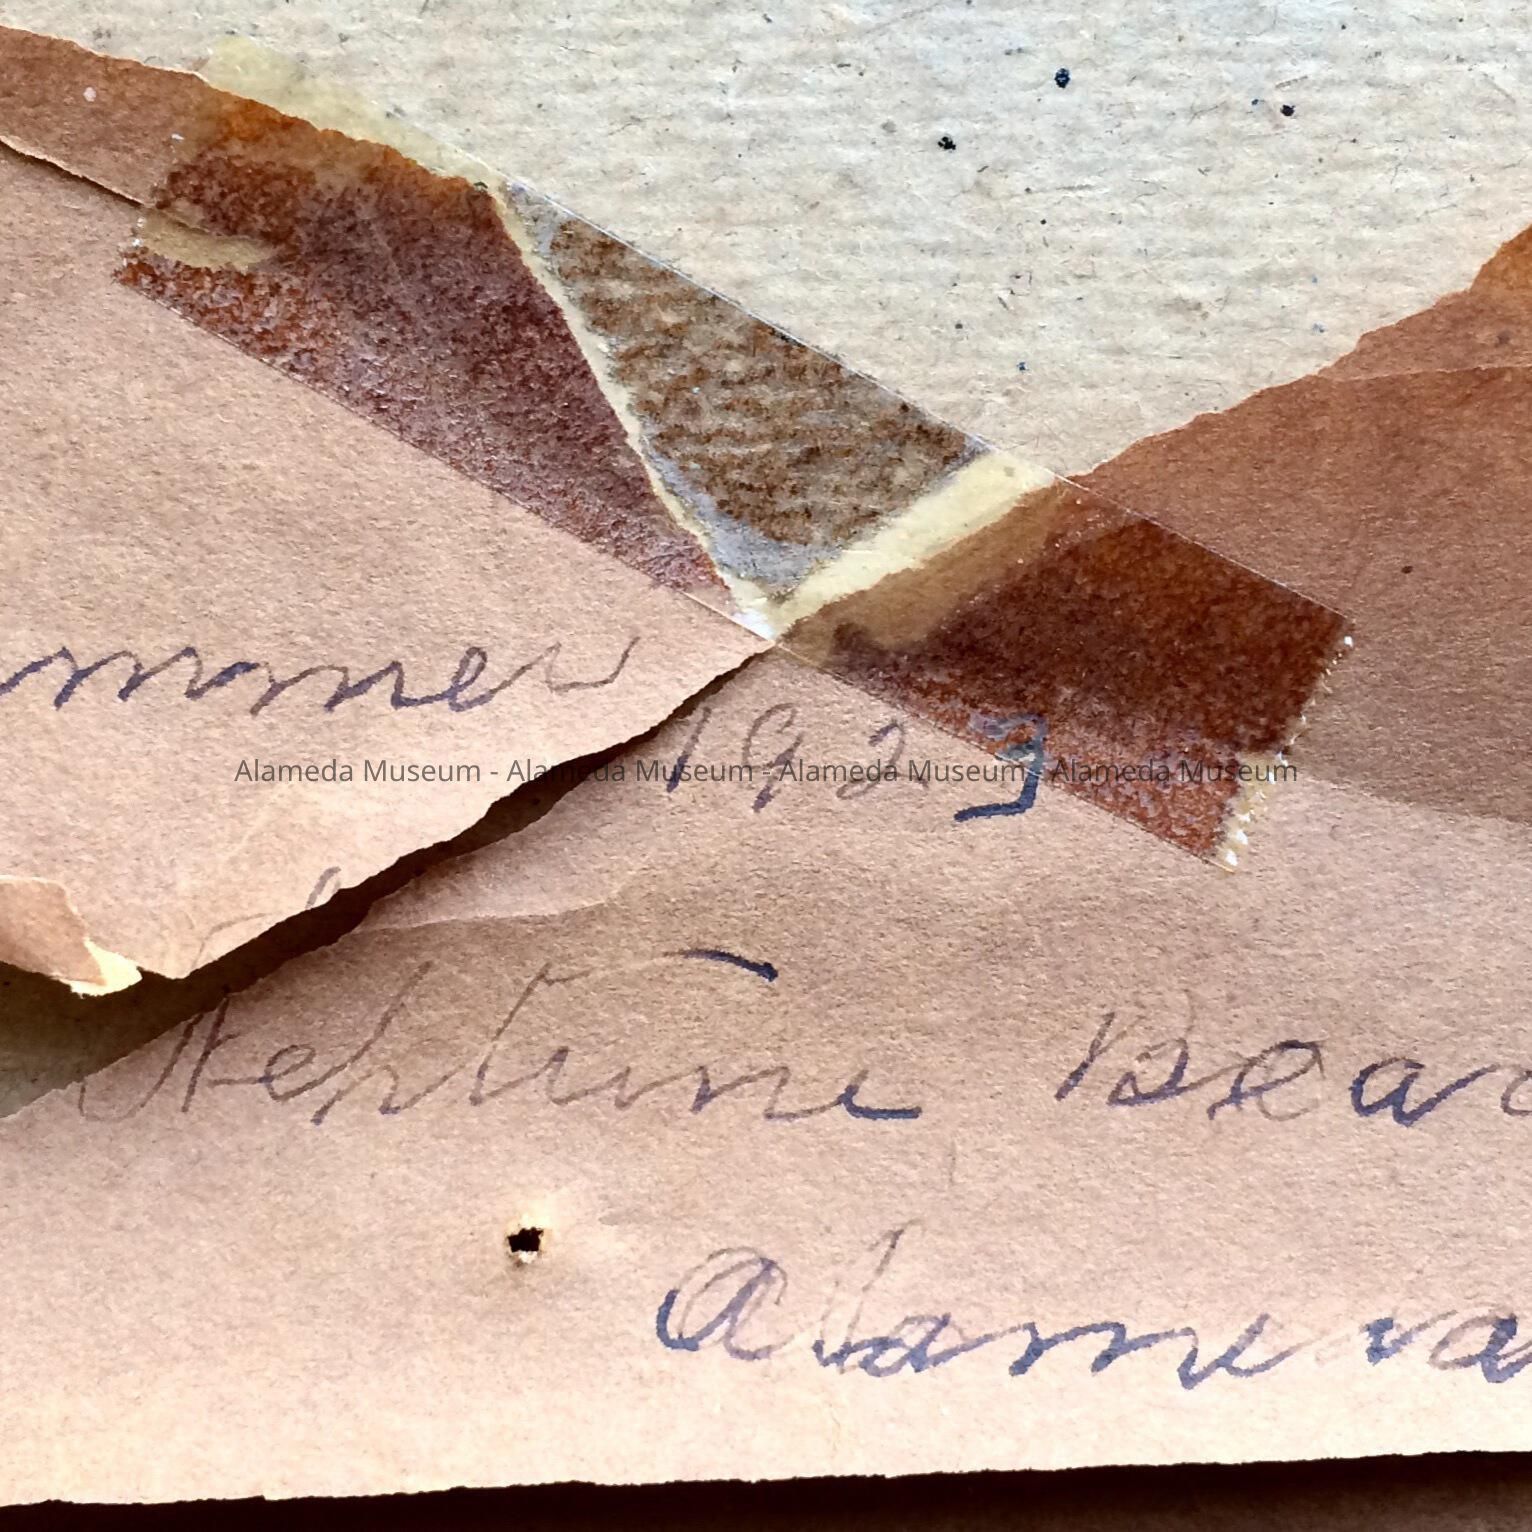 ummer
1923
Alameda Museum - Alameda Museum - Alameda Museum - Alameda Museum
Neptune Beac
Alameda